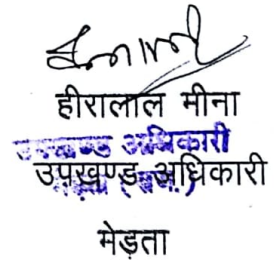 हीरालाल मीना
उपखण्ड अधिकारी
उपखण्ड अधिकारी
मेड़ता